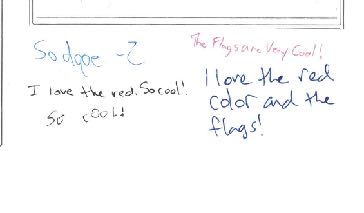 So dope -Z
I love the red. So cool!
So cool!
The Flags are Very Cool!
I love the red
color and the
flags!